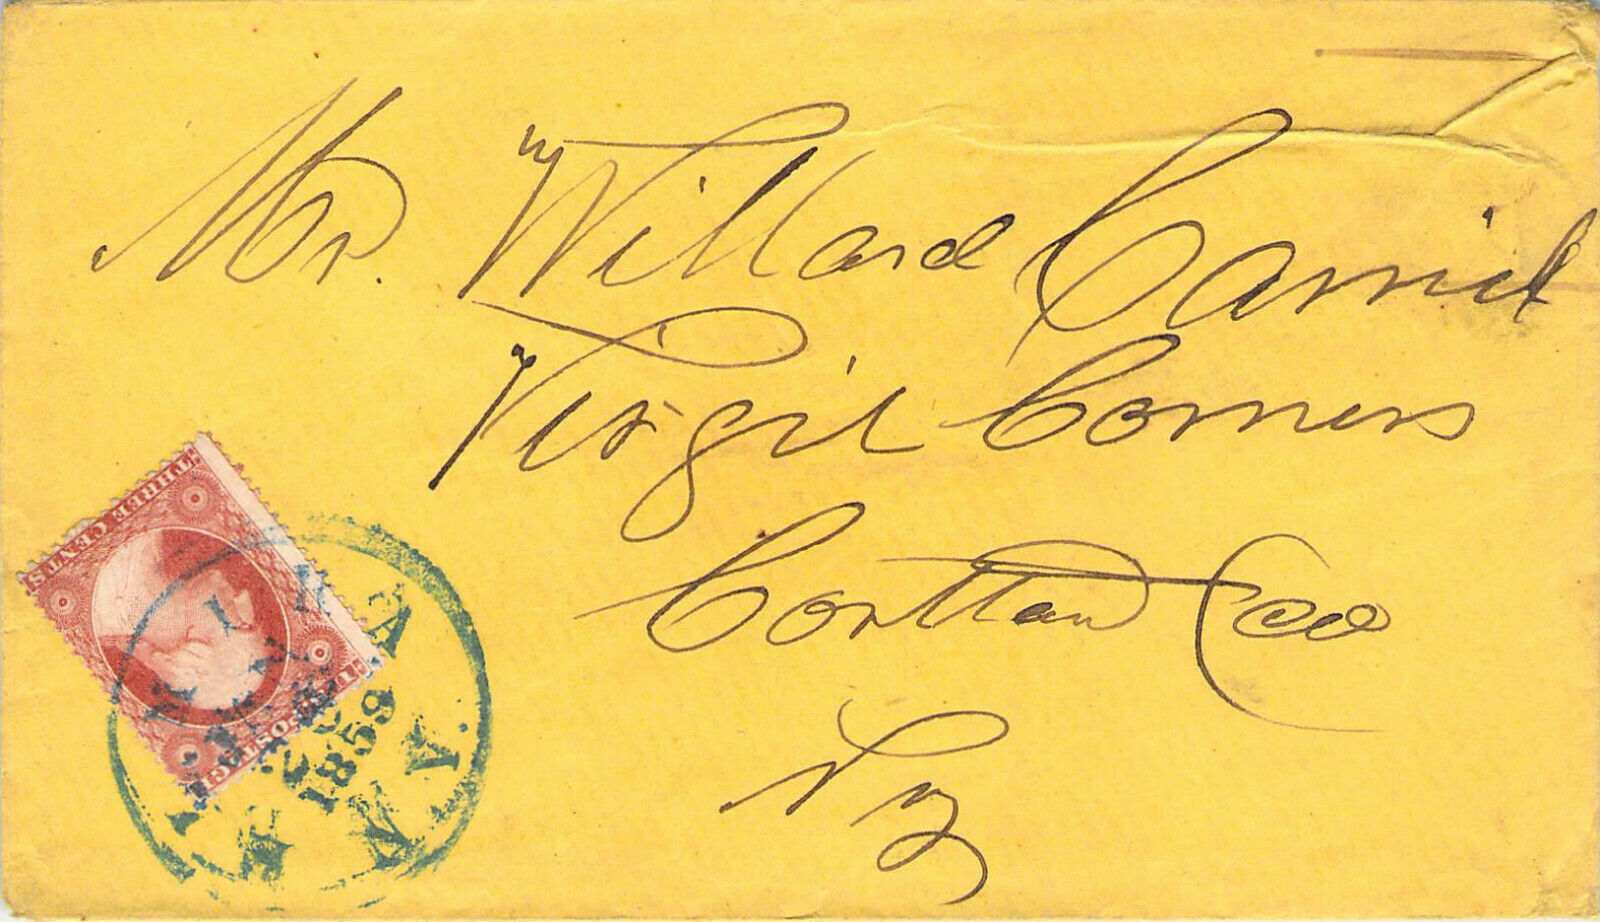 Mr. Willard Carrick
Virgil Corners
Cortland Co
NY
THREE CENTS
U.S. POSTAGE
ELMIRA
JAN
1859
N.Y.